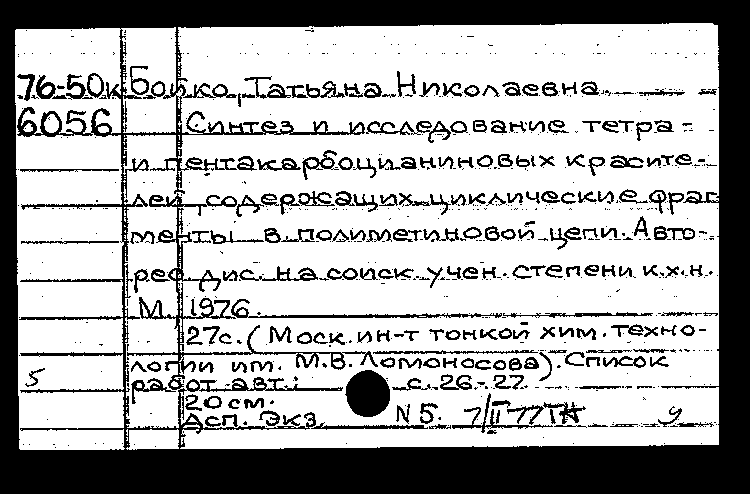 76-50к Бойко, Татьяна Николаевна
6056 Синтез и исследование тетра-
и пентакарбоцианиновых красите-
лей, содержащих циклические фраг
менты в полиметиновой цепи. Авто-
реф. дис. на соиск. учен. степени к.х.н.
М., 1976.
27с. (Моск. ин-т тонкой хим. техно-
логии им. М.В. Ломоносова). Список
5 работ авт.: с. 26-27
20 см.
Дсп. Экз. N 5. 7/II 77